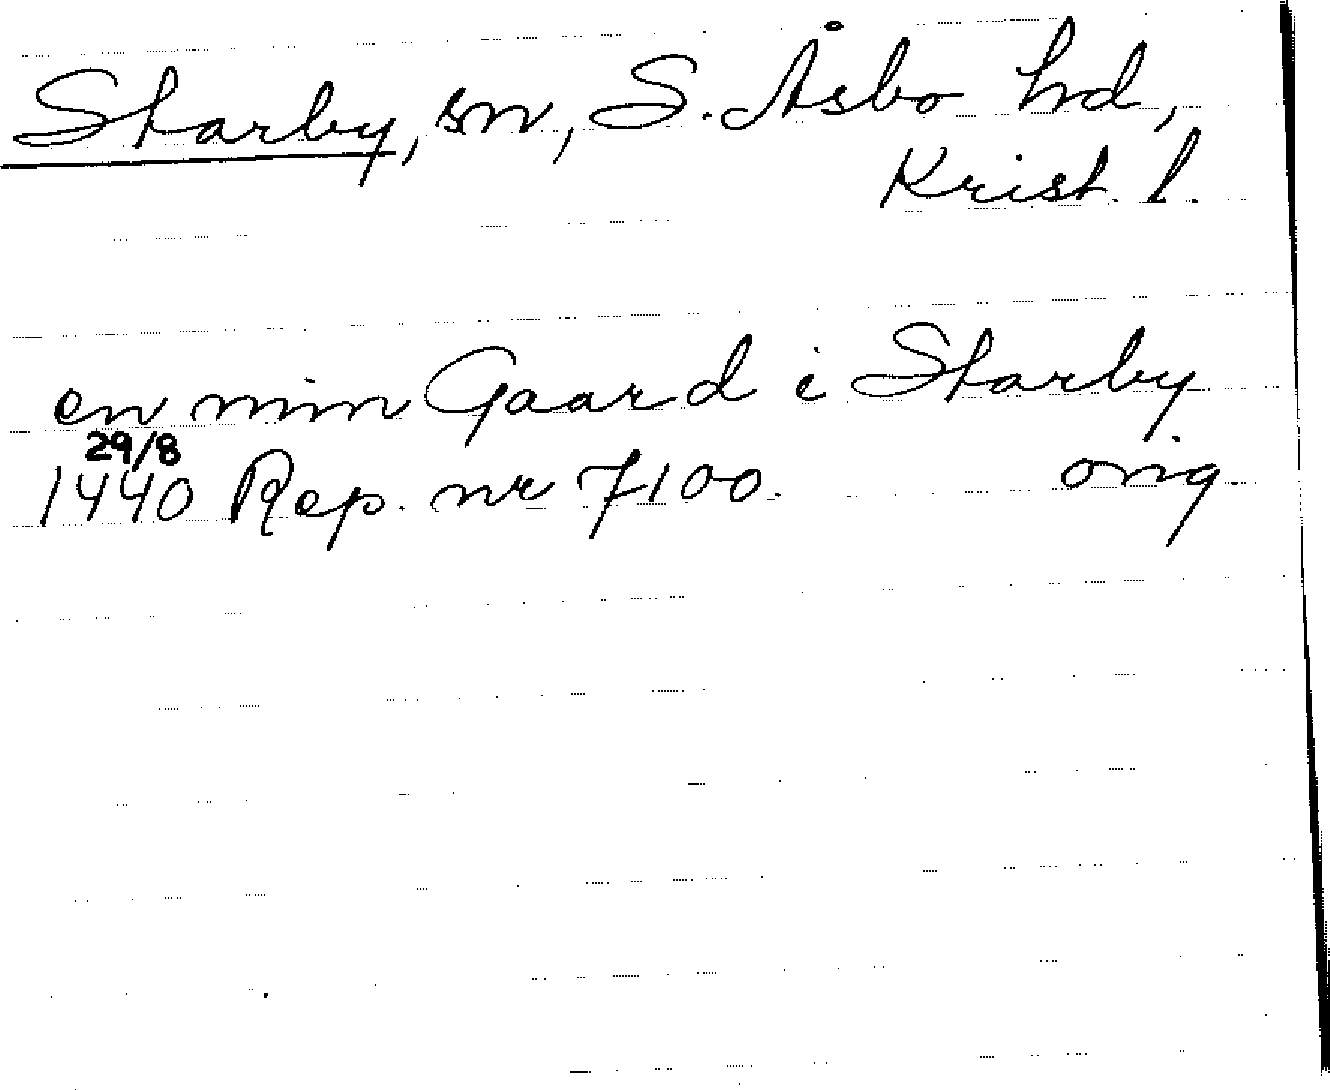 Starby, sn, S. Åsbo hd,
Krist. l.
en min Gaard i Starby
29/8
1440 Rep. nr 7100. orig